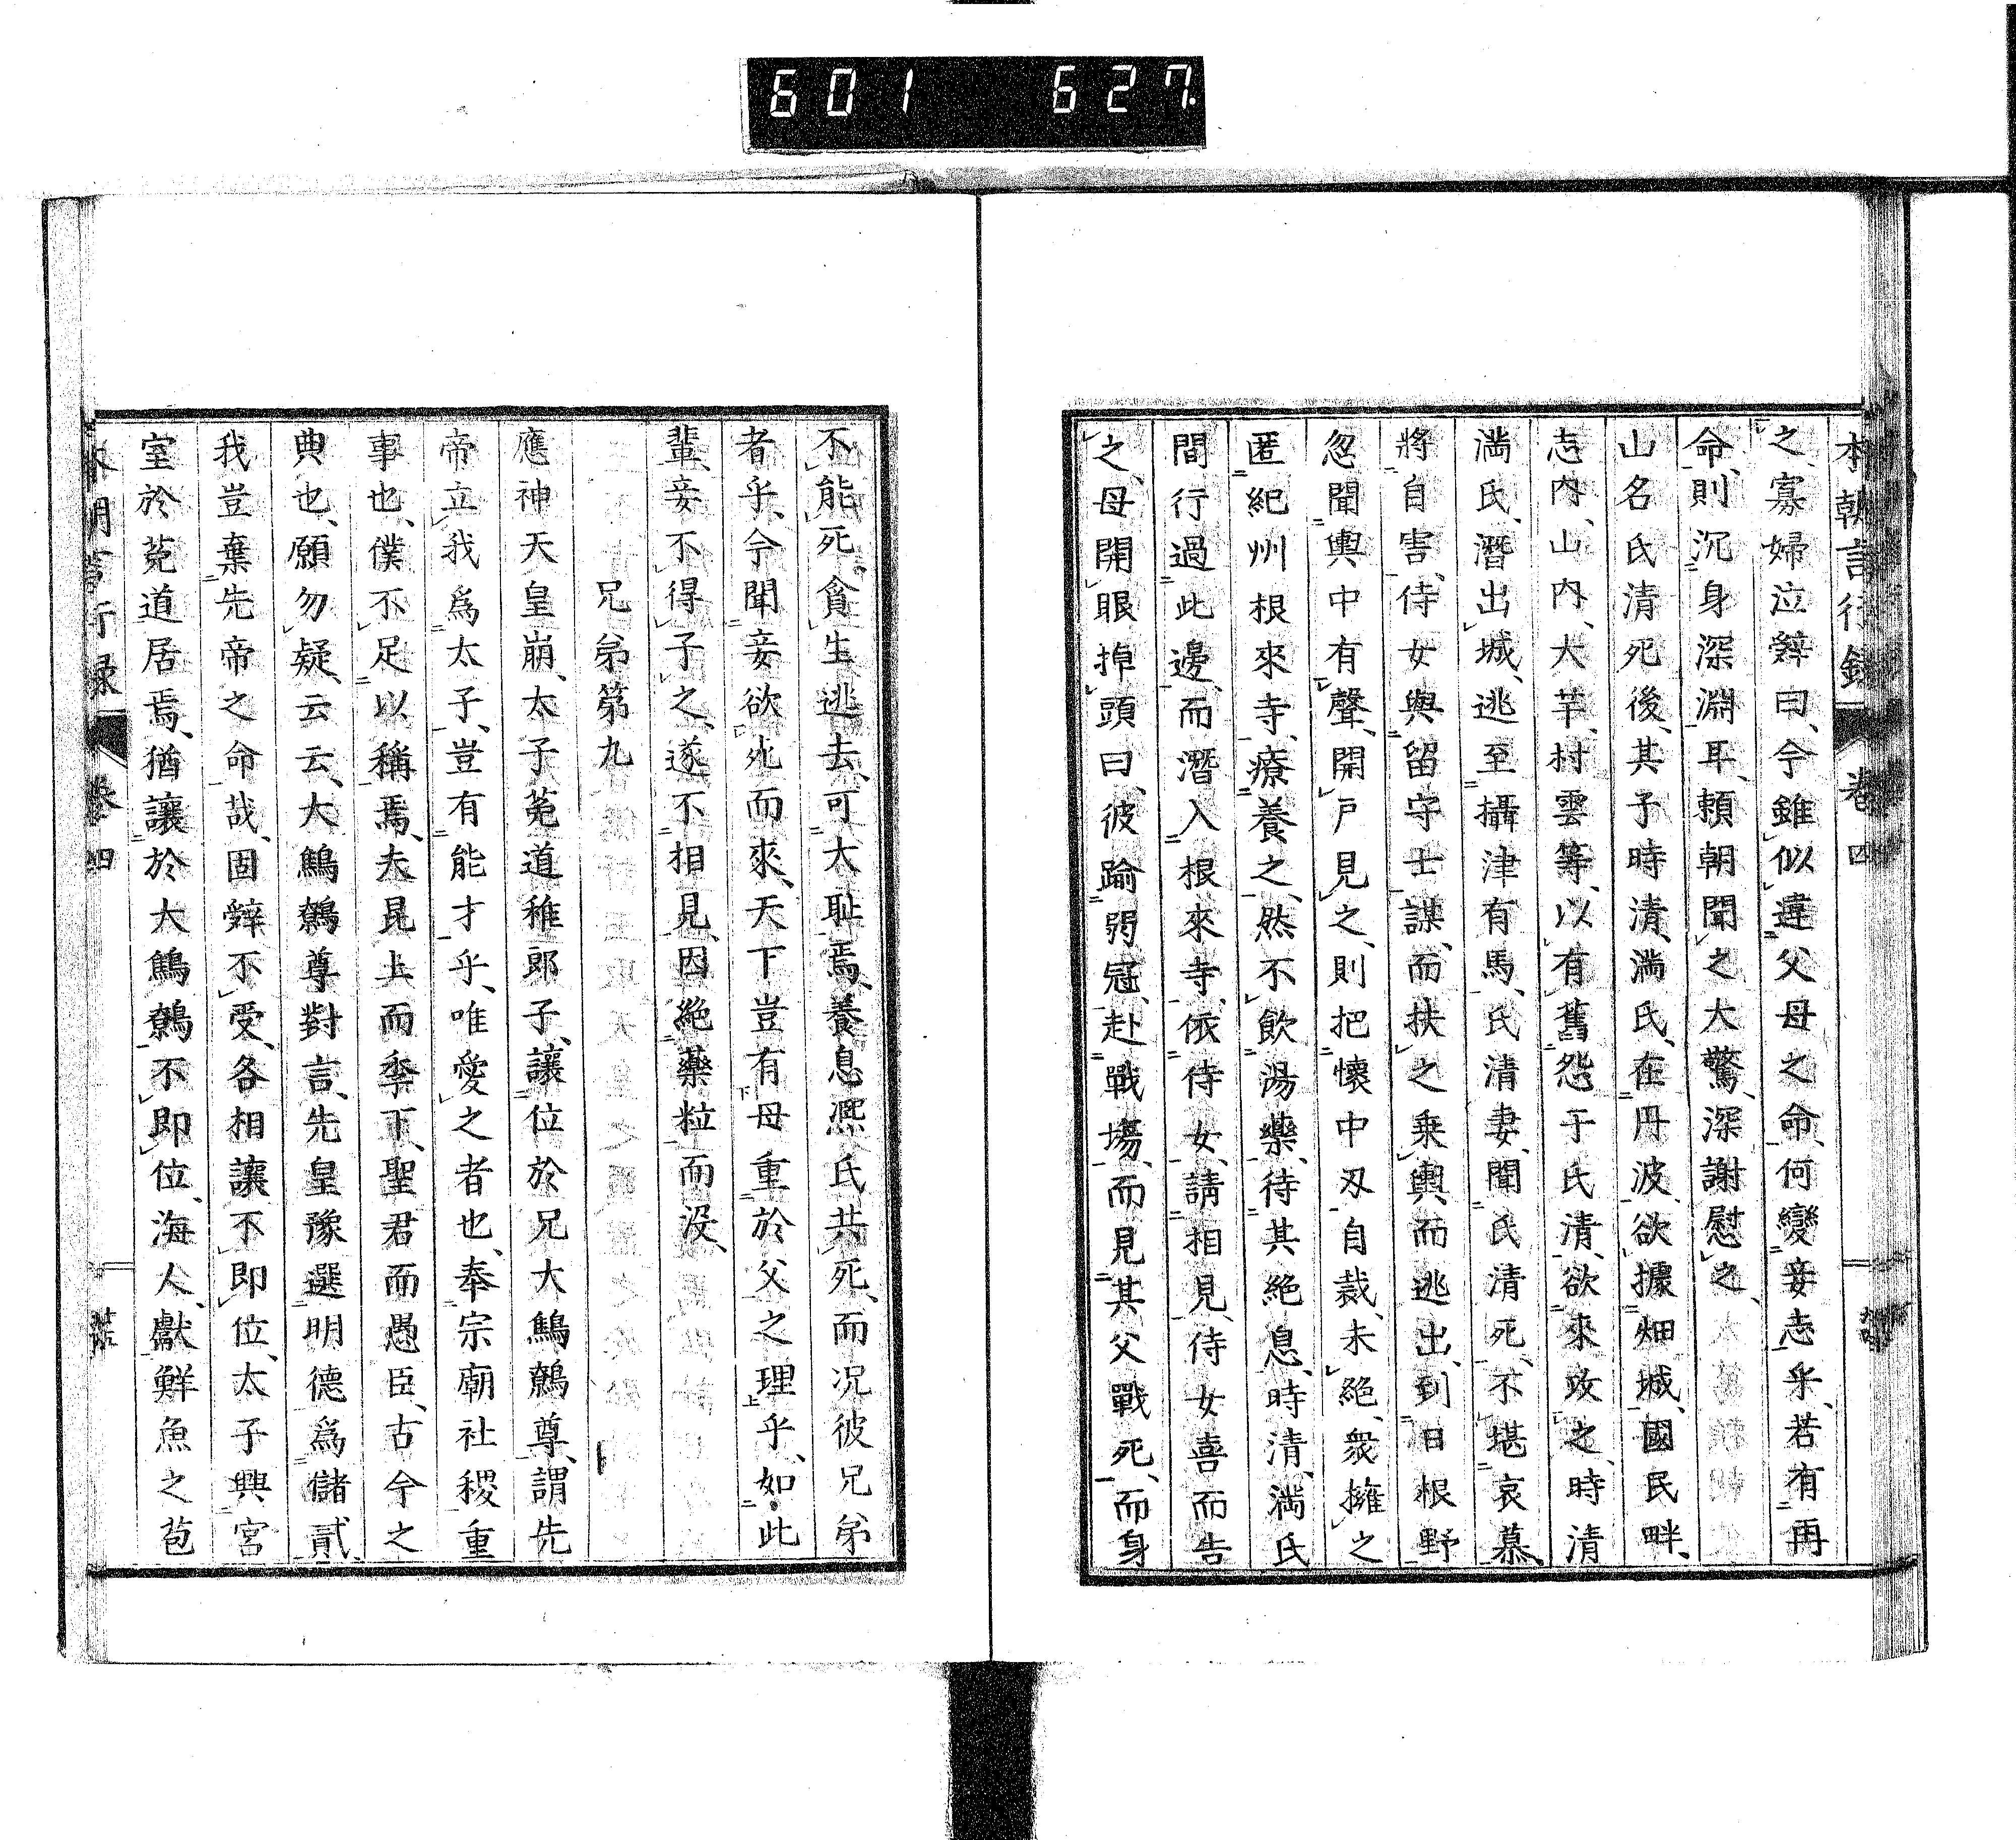 601 627
本朝言行錄 卷四
之、寡婦泣辤曰、今雖似違父母之命、何變妾志乎、若有再
命、則沉身深淵耳、頼朝聞之大驚、深謝慰之、
山名氏清死後、其子時清、滿氏、在丹波、欲據畑城、國民畔、
志內、山內、大芋、村雲等、以有舊怨于氏清、欲來攻之、時清
滿氏、潛出城、逃至攝津有馬、氏清妻、聞氏清死、不堪哀慕、
將自害、侍女與留守士謀、而扶之乗輿、而逃出、到日根野
忽聞輿中有聲、開戸見之、則把懷中刃自裁、未絕、衆擁之
匿紀州根來寺、療養之、然不飮湯藥、待其絕息、時清、滿氏
間行過此邊、而潛入根來寺、依侍女、請相見、侍女喜而告
之、母開眼掉頭曰、彼踰弱冠、赴戰塲、而見其父戰死、而身
不能死、貪生逃去、可大恥焉、養息凞氏共死、而况彼兄弟
者乎、今聞妾欲死而來、天下豈有母重於父之理乎、如此
輩、妾不得子之、遂不相見、因絕藥粒而沒、
兄弟第九
應神天皇崩、太子菟道稚郎子、讓位於兄大鷦鷯尊、謂先
帝立我爲太子、豈有能才乎、唯愛之者也、奉宗廟社稷重
事也、僕不足以稱焉、夫昆上而季下、聖君而愚臣、古今之
典也、願勿疑、云云、大鷦鷯尊對言、先皇豫選明德爲儲貳、
我豈棄先帝之命哉、固辤不受、各相讓不即位、太子興宮
室於菟道居焉、猶讓於大鷦鷯不即位、海人、獻鮮魚之苞
本朝言行録 卷四